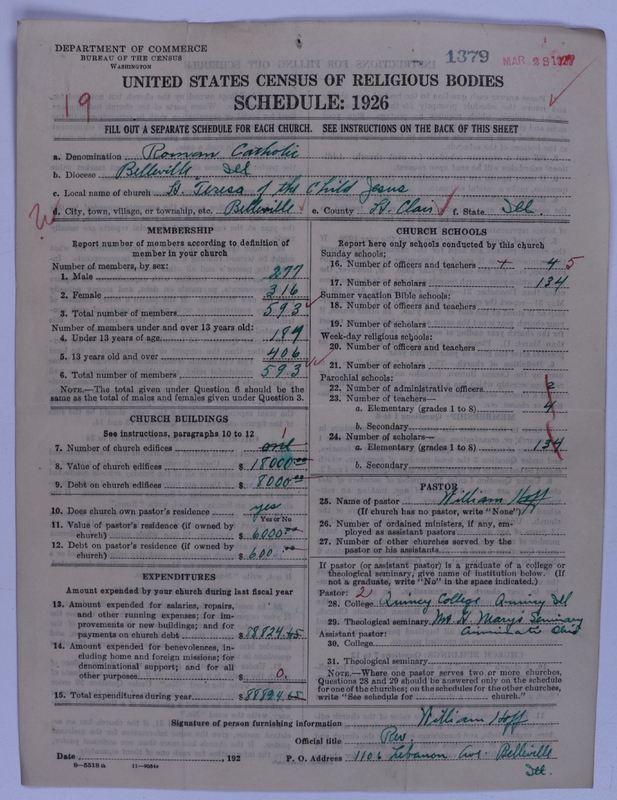 DEPARTMENT OF COMMERCE
BUREAU OF THE CENSUS
WASHINGTON
1379
MAR 28 1927
UNITED STATES CENSUS OF RELIGIOUS BODIES
SCHEDULE: 1926
19
FILL OUT A SEPARATE SCHEDULE FOR EACH CHURCH. SEE INSTRUCTIONS ON THE BACK OF THIS SHEET
a. Denomination Roman Catholic
b. Diocese Belleville Ill
c. Local name of church St. Teresa of the Child Jesus
d. City, town, village, or township, etc. Belleville e. County St. Clair f. State Ill.
MEMBERSHIP
Report number of members according to definition of
member in your church
Number of members, by sex:
1. Male 277
2. Female 316
3. Total number of members 593
Number of members under and over 13 years old:
4. Under 13 years of age
5. 13 years old and over 406
6. Total number of members 593
NOTE.—The total given under Question 6 should be the
same as the total of males and females given under Question 3.
CHURCH BUILDINGS
See instructions, paragraphs 10 to 12
7. Number of church edifices one 1
8. Value of church edifices $ 18000.00
9. Debt on church edifices $ 8000
10. Does church own pastor's residence? yes
Yes or No
11. Value of pastor's residence (if owned by
church) $ 6000.00
12. Debt on pastor's residence (if owned by
church) $ 600
EXPENDITURES
Amount expended by your church during last fiscal year
13. Amount expended for salaries, repairs,
and other running expenses; for im-
provements or new buildings; and for
payments on church debt $
14. Amount expended for benevolences, in-
cluding home and foreign missions; for
denominational support; and for all
other purposes $ 0.
15. Total expenditures during year $
CHURCH SCHOOLS
Report here only schools conducted by this church
Sunday schools:
16. Number of officers and teachers + 4 5
17. Number of scholars 134
Summer vacation Bible schools:
18. Number of officers and teachers
19. Number of scholars
Week-day religious schools:
20. Number of officers and teachers
21. Number of scholars
Parochial schools:
22. Number of administrative officers 2
23. Number of teachers—
a. Elementary (grades 1 to 8) 4
b. Secondary
24. Number of scholars—
a. Elementary (grades 1 to 8) 134
b. Secondary
PASTOR
25. Name of pastor William Hoff
(If church has no pastor, write "None")
26. Number of ordained ministers, if any, em-
ployed as assistant pastors
27. Number of other churches served by the
pastor or his assistants
If pastor (or assistant pastor) is a graduate of a college or
theological seminary, give name of institution below. (If
not a graduate, write "No" in the space indicated.)
Pastor: 2
28. College Quincy College Quincy Ill
29. Theological seminary Mt St. Marys Seminary
Assistant pastor: Cincinnati Ohio
30. College
31. Theological seminary
NOTE.—Where one pastor serves two or more churches,
Questions 28 and 29 should be answered only on the schedule
for one of the churches; on the schedules for the other churches,
write "See schedule for church."
Signature of person furnishing information William Hoff
Official title Rev.
Date , 192 P. O. Address 1106 Lebanon Ave. Belleville
Ill.
8-5518a 11-9254a